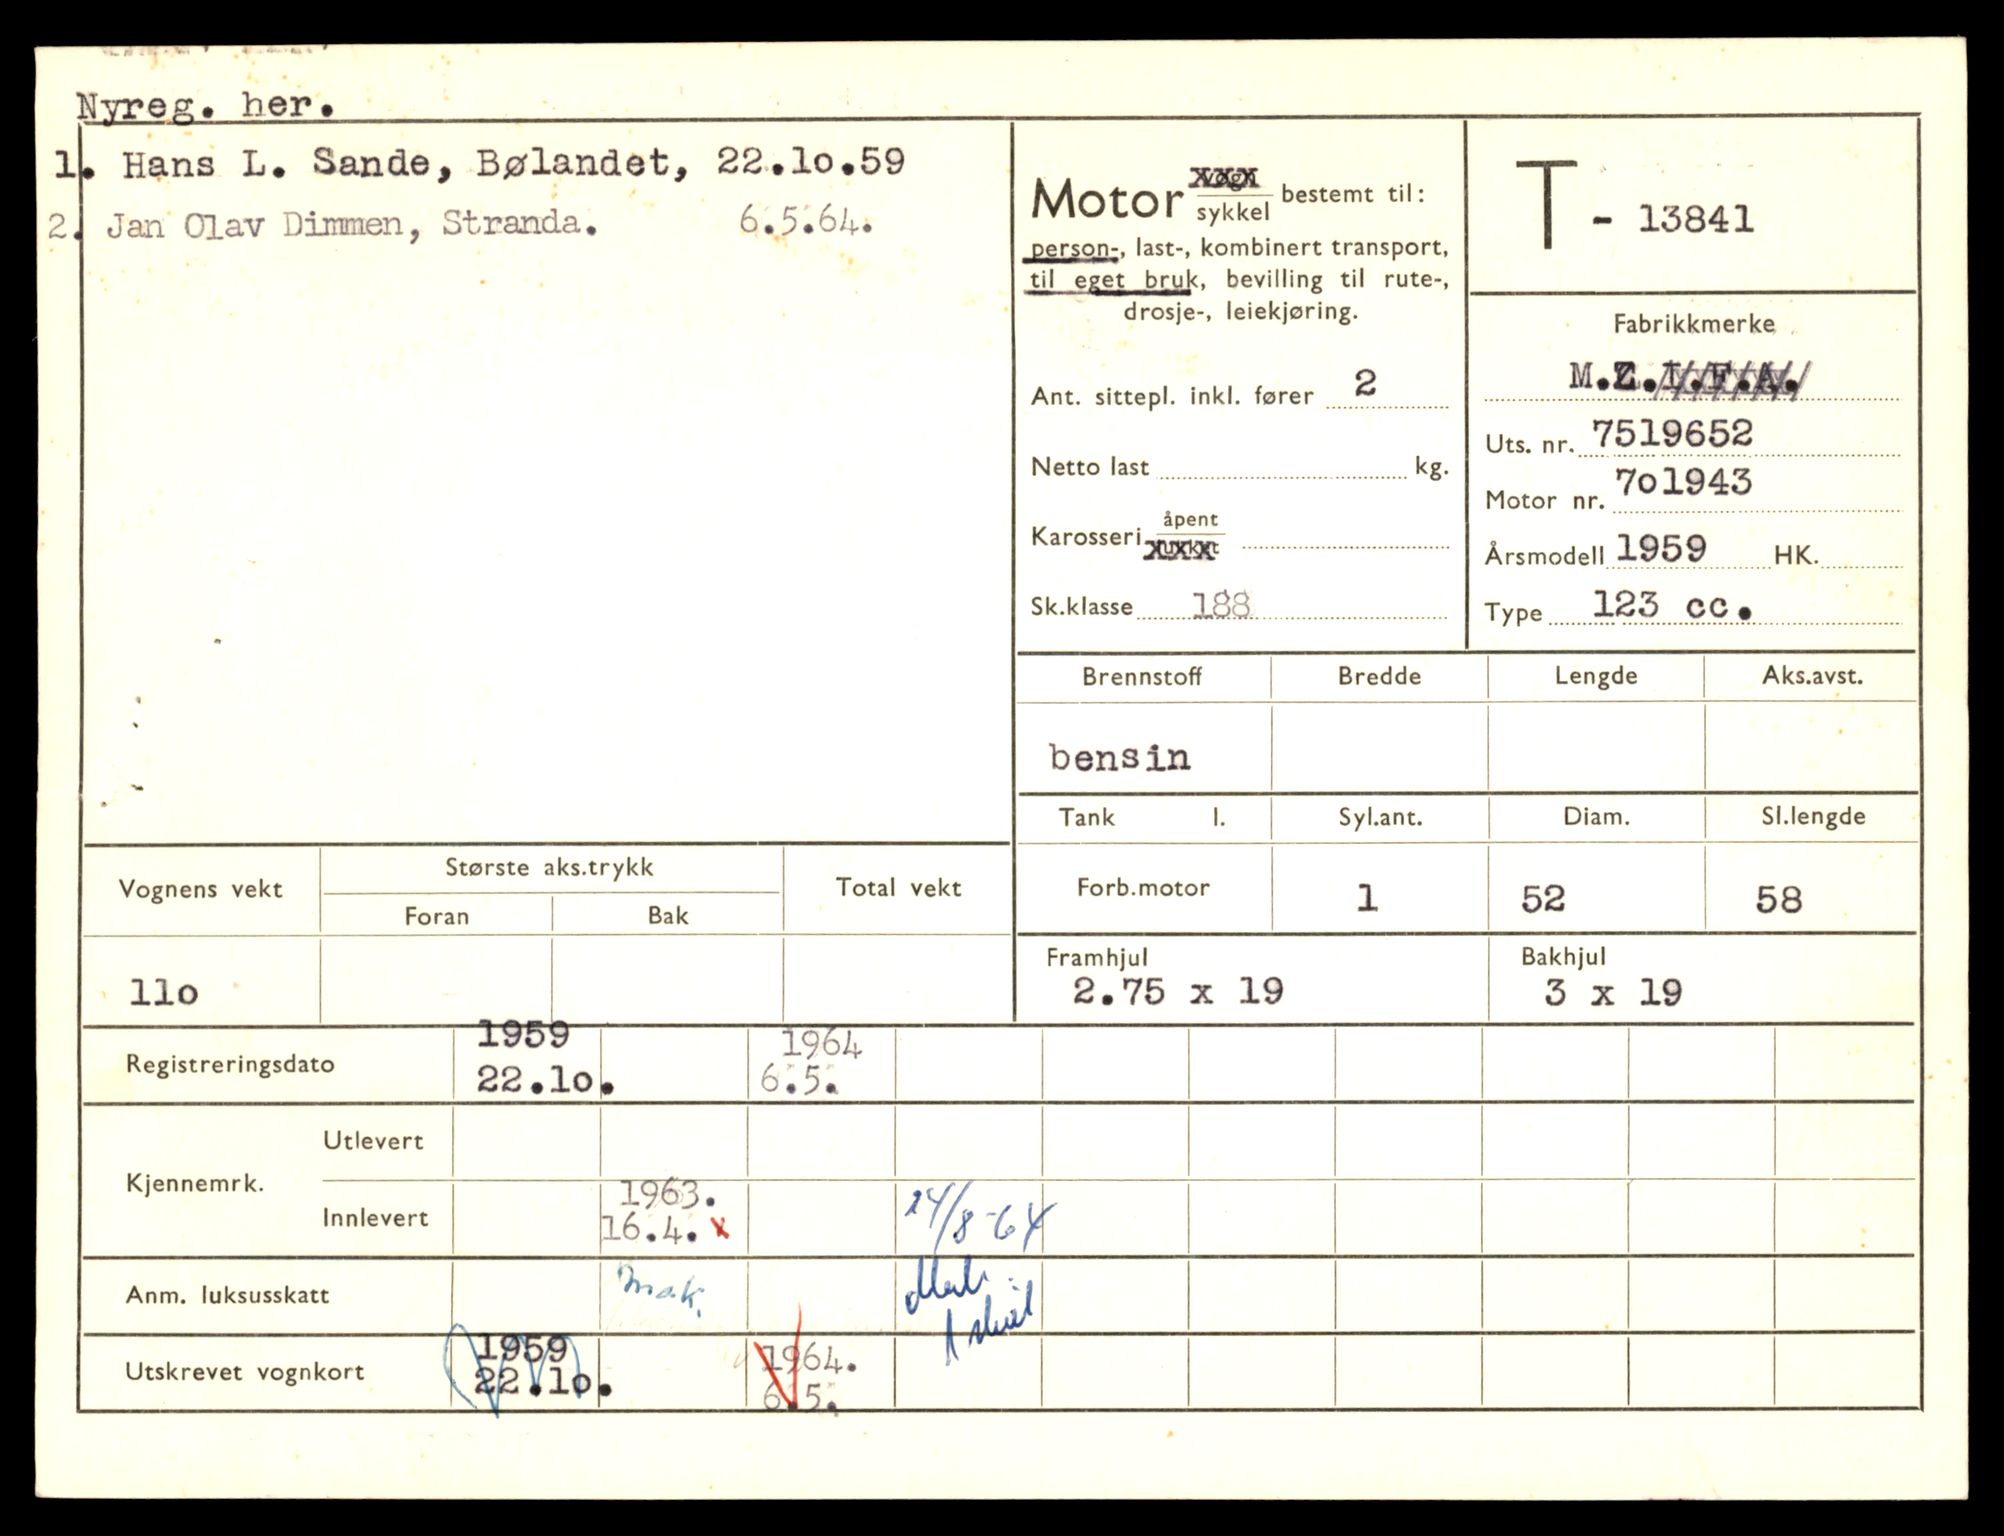 Nyreg. her.
1. Hans L. Sande, Bølandet, 22.1o.59
2. Jan Olav Dimmen, Stranda. 6.5.64.
Motor vogn sykkel bestemt til:
person-, last-, kombinert transport,
til eget bruk, bevilling til rute-,
drosje-, leiekjøring.
Ant. sittepl. inkl. fører 2
Netto last kg.
Karosseri åpent lukket
Sk.klasse 188
T - 13841
Fabrikkmerke
M.Z.I.F.A.
Uts. nr. 7519652
Motor nr. 7o1943
Årsmodell 1959 HK.
Type 123 cc.
Brennstoff Bredde Lengde Aks.avst.
bensin
Tank l. Syl.ant. Diam. Sl.lengde
Forb.motor 1 52 58
Framhjul Bakhjul
2.75 x 19 3 x 19
Vognens vekt Største aks.trykk Total vekt
Foran Bak
11o
Registreringsdato 1959 1964
22.1o. 6.5.
Kjennemrk. Utlevert
Innlevert 1963. 24/8-64
16.4. x
Anm. luksusskatt mak.
Utskrevet vognkort 1959 1964.
22.1o. 6.5.